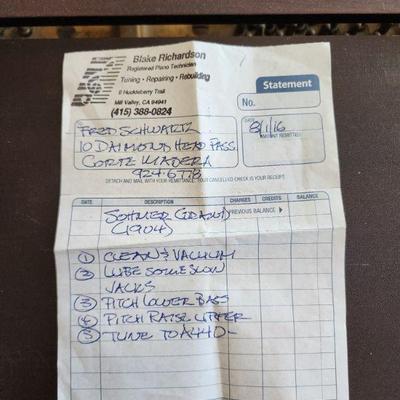 Blake Richardson
Registered Piano Technician
Tuning • Repairing • Rebuilding
8 Huckleberry Trail
Mill Valley, CA 94941
(415) 388-0824
Statement
No.
FRED SCHWARTZ
10 DAIMOND HEAD PASS
CORTE MADERA
924-6778
DATE
8/1/16
AMOUNT REMITTED
DETACH AND MAIL WITH YOUR REMITTANCE. YOUR CANCELLED CHECK IS YOUR RECEIPT.
DATE DESCRIPTION CHARGES CREDITS BALANCE
SOHMER (GRAND) PREVIOUS BALANCE
(1904)
① CLEAN & VACUUM
② LUBE SOME SLOW
JACKS
③ PITCH LOWER BASS
④ PITCH RAISE UPPER
⑤ TUNE TO A440-